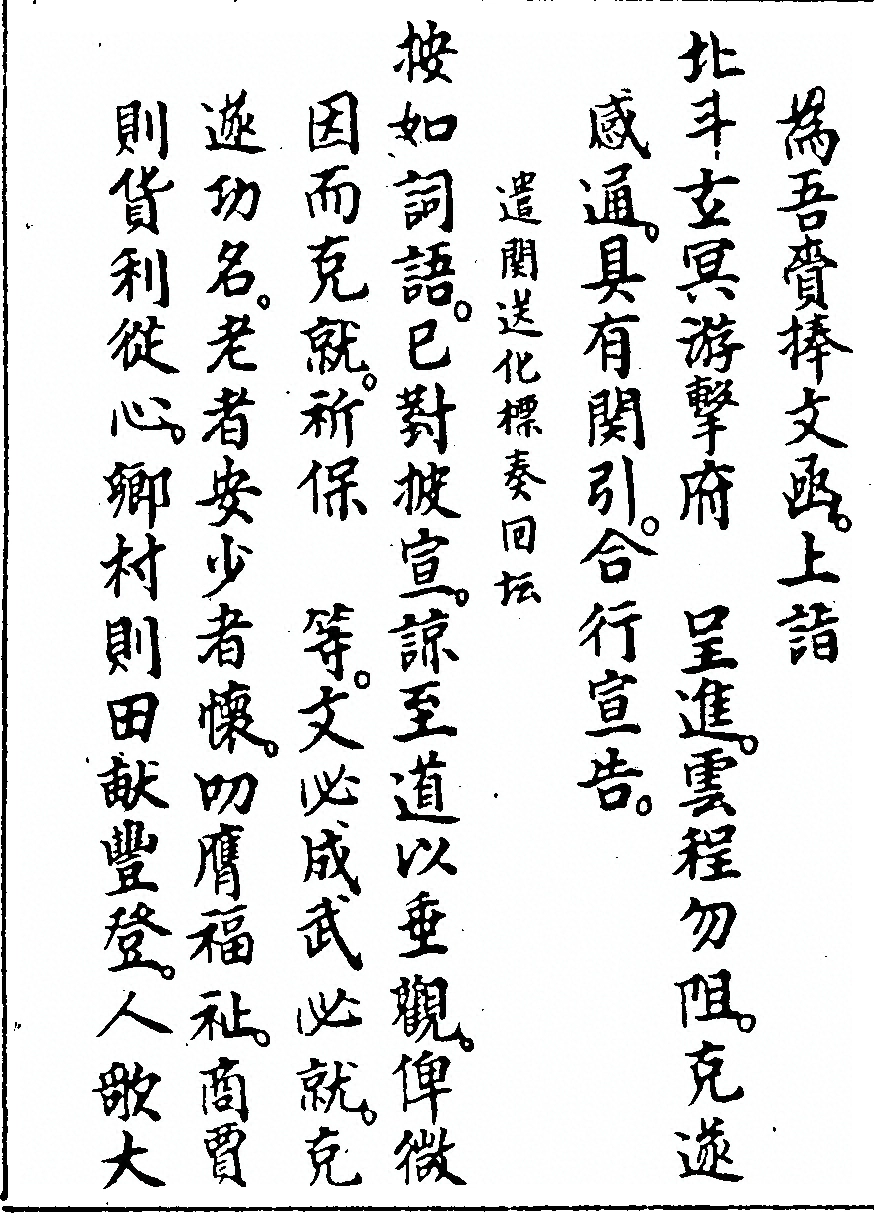 為吾賫捧文凾。上詣
北斗玄冥游擊府　呈進。雲程勿阻。克遂
感通。具有関引。合行宣告。
遣関送化標奏回坛
按如詞語。已對披宣。諒至道以垂觀。俾微
因而克就。祈保　等。文必成武必就。克
遂功名。老者安少者懷。叨膺福祉。商賈
則貨利從心。鄉村則田畝豐登。人歌大